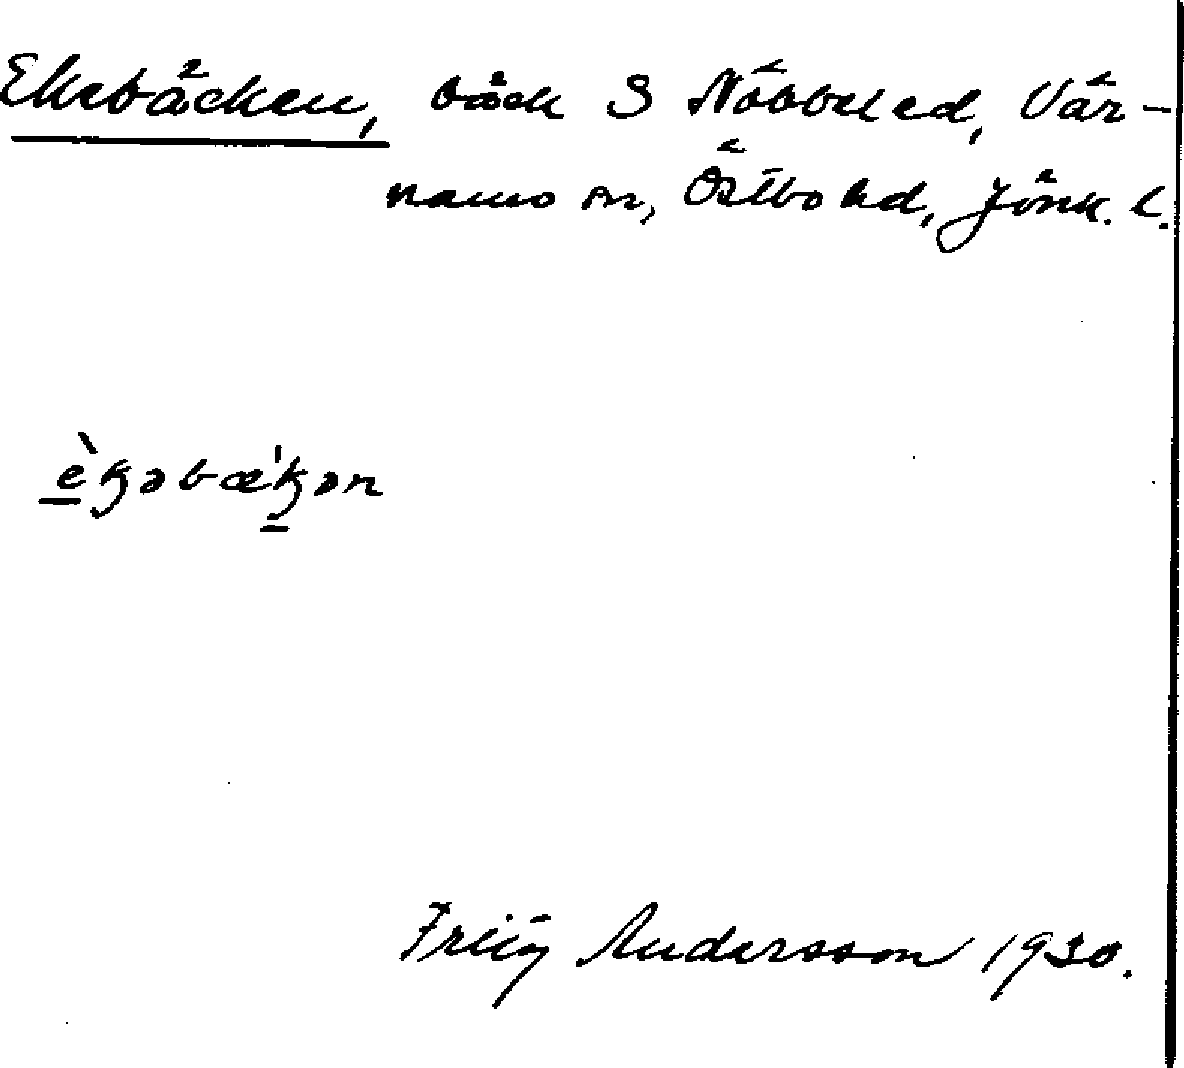 Ekebäcken, bäck S Nöbbeled, Vär-
namo sn, Östbo hd, Jönk. l.
è̠ꞣəbæ'ꞣ̠ən
Andersson 1930.